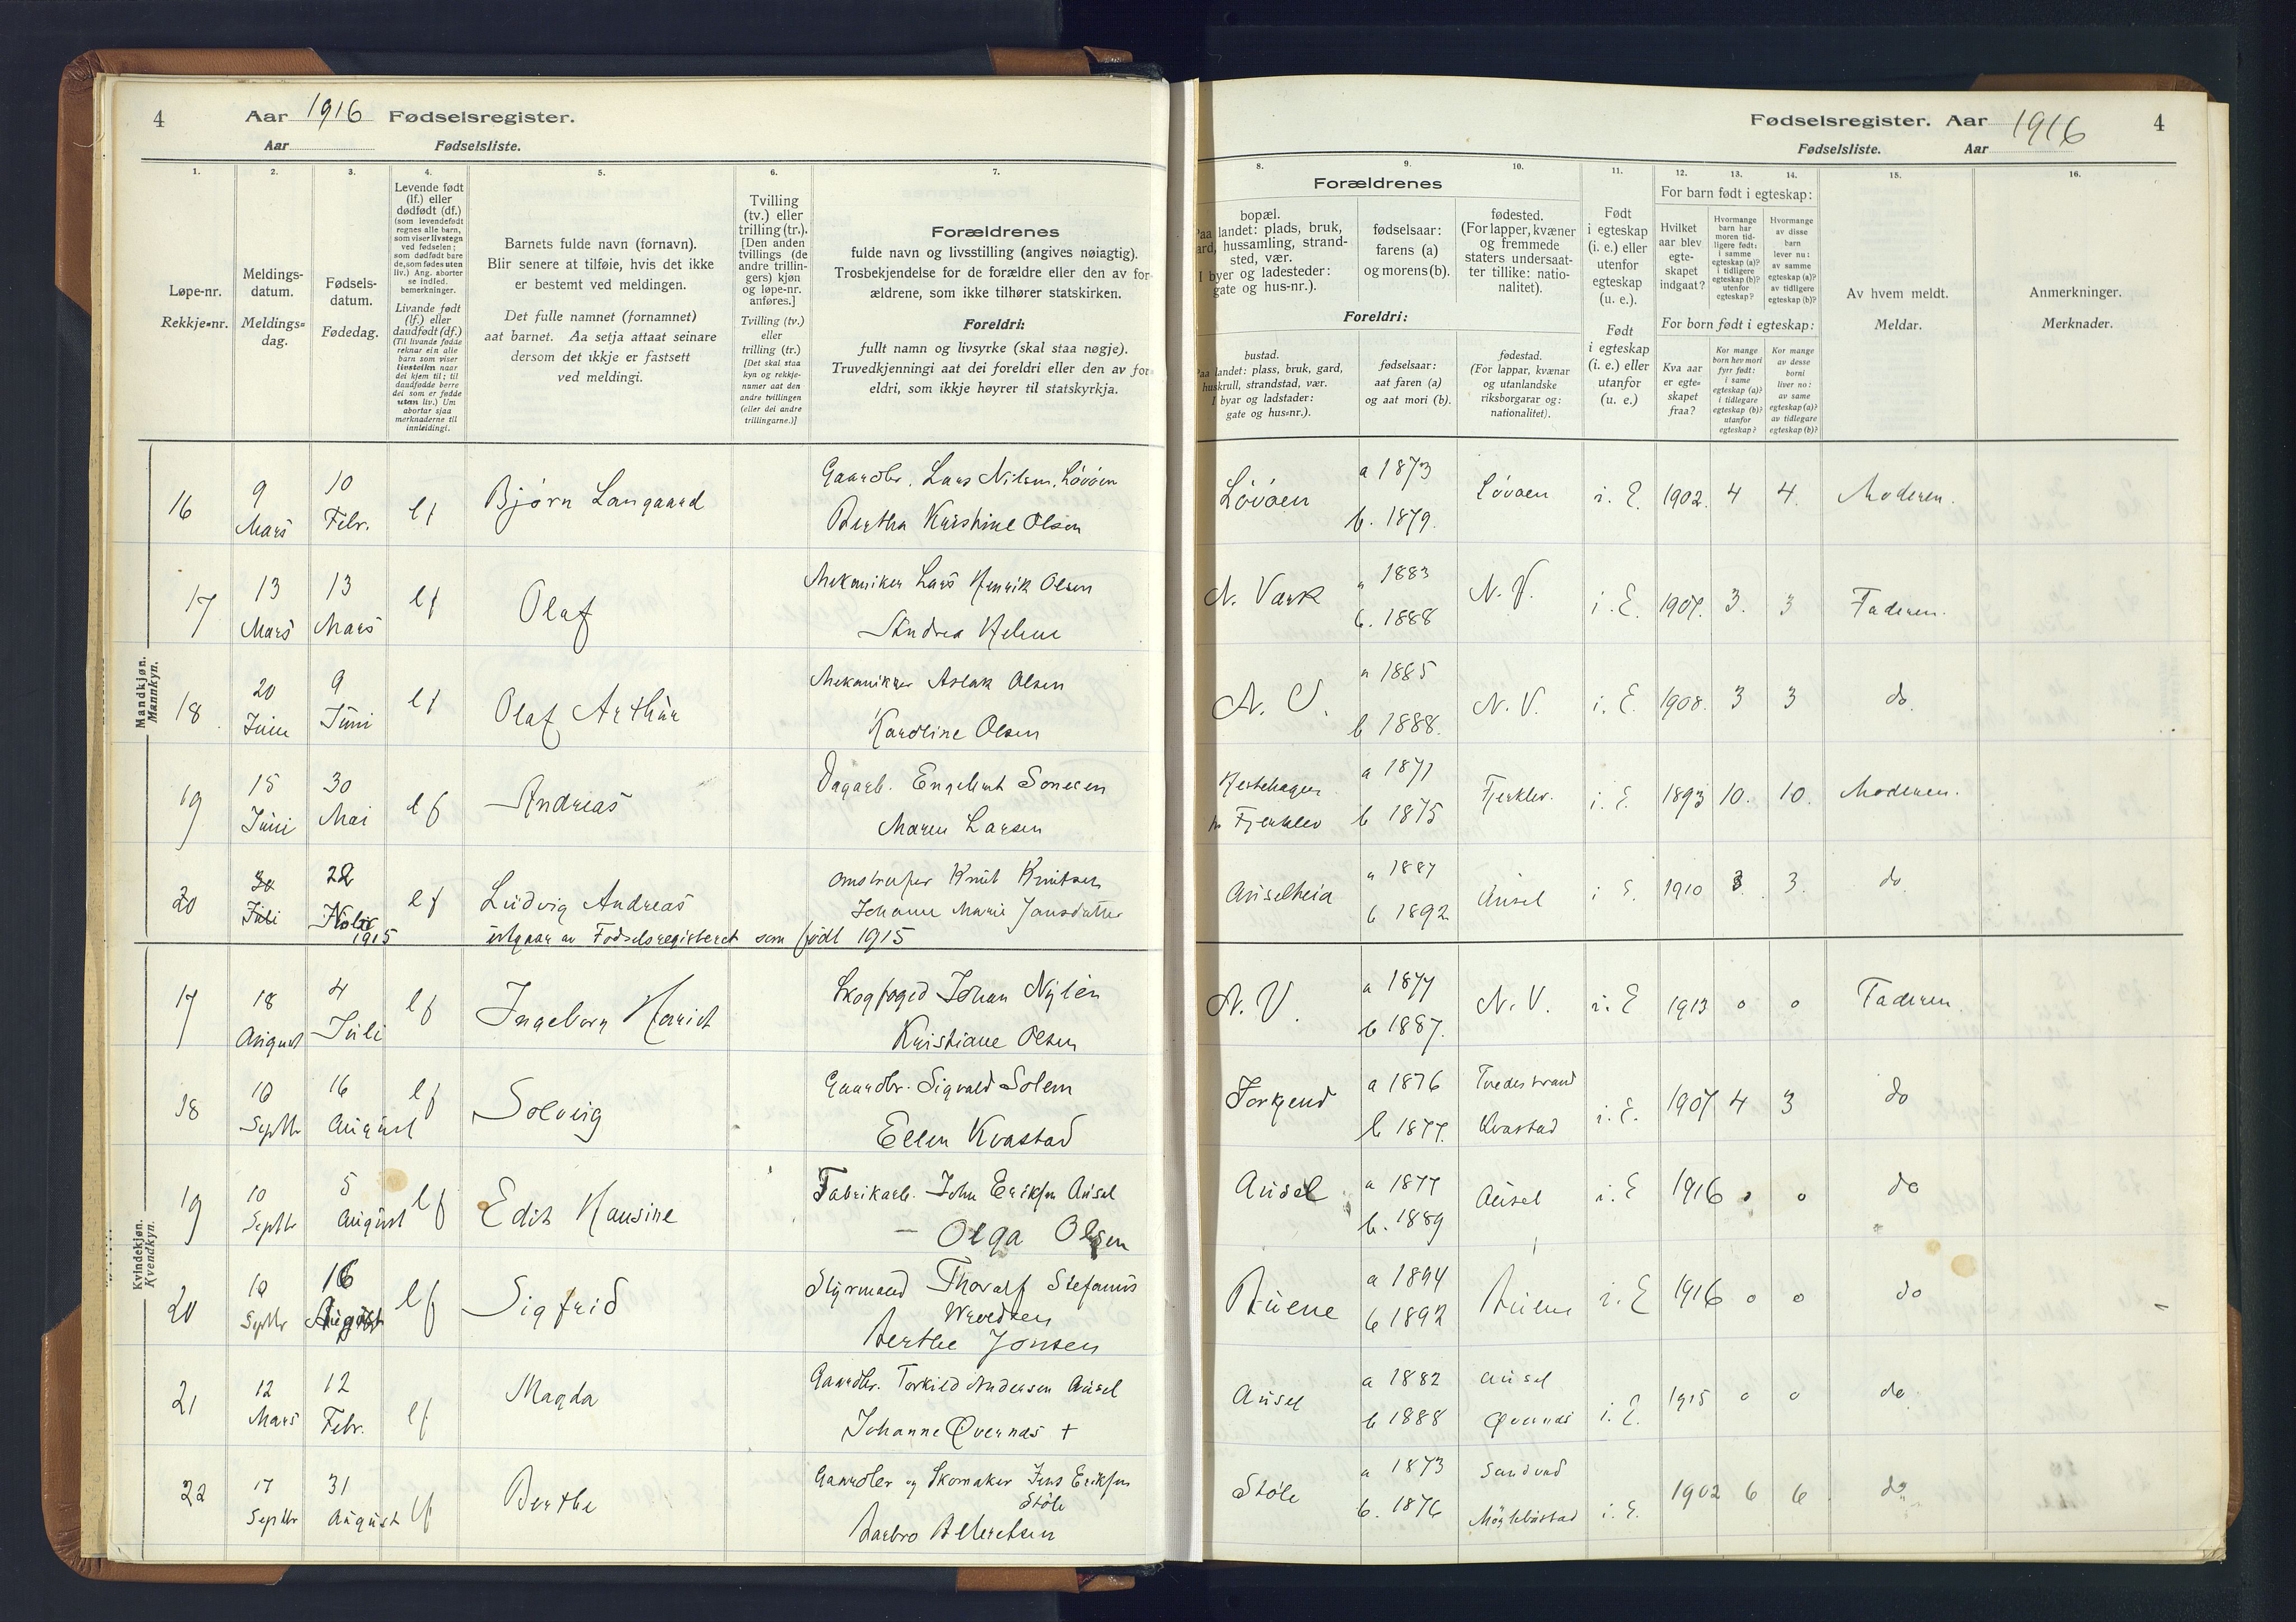 4
Aar 1916 Fødselsregister.
Aar Fødselsliste.
Fødselsregister. Aar 1916
4
Fødselsliste. Aar
1. 2. 3. 4. 5. 6. 7.
Løpe-nr.
Rekkje-nr.
Meldings-
datum.
Meldings-
dag.
Fødsels-
datum.
Fødedag.
Levende født
(lf.) eller
dødfødt (df.)
(som levendefødt
regnes alle barn,
som viser livstegn
ved fødselen;
som dødfødt bare
de, som fødes uten
liv.) Ang. aborter
se indled.
bemerkninger.
Livande født
(lf.) eller
daudfødt (df.)
(Til livande fødde
reknar ein alle
barn som viser
livsteikn naar
dei kjem til; til
daudfødde berre
dei som er fødde
utan liv.) Um
abortar sjaa
merknaderne til
innleidingi.
Barnets fulde navn (fornavn).
Blir senere at tilføie, hvis det ikke
er bestemt ved meldingen.
Det fulle namnet (fornamnet)
aat barnet. Aa setja attaat seinare
dersom det ikkje er fastsett
ved meldingi.
Tvilling
(tv.) eller
trilling (tr.).
[Den anden
tvillings (de
andre trillin-
gers) kjøn
og løpe-nr.
anføres.]
Tvilling (tv.)
eller
trilling (tr.)
[Det skal staa
kyn og rekkje-
numer aat den
andre tvillingen
(eller dei andre
trillingarne.)]
Forældrenes
fulde navn og livsstilling (angives nøiagtig).
Trosbekjendelse for de forældre eller den av for-
ældrene, som ikke tilhører statskirken.
Foreldri:
fullt namn og livsyrke (skal staa nøgje).
Truvedkjenningi aat dei foreldri eller den av for-
eldri, som ikkje høyrer til statskyrkja.
8. 9. 10. 11. 12. 13. 14. 15. 16.
Forældrenes
bopæl.
landet: plads, bruk,
hussamling, strand-
sted, vær.
I byer og ladesteder:
gate og hus-nr.).
fødselsaar:
farens (a)
og morens (b).
fødested.
(For lapper, kvæner
og fremmede
staters undersaat-
ter tillike: natio-
nalitet).
Foreldri:
bustad.
landet: plass, bruk, gard,
huskrull, strandstad, vær.
I byar og ladstader:
gate og hus-nr.).
fødselsaar:
aat faren (a)
og aat mori (b).
fødestad.
(For lappar, kvænar
og utanlandske
riksborgarar og:
nationalitet).
Født
i egteskap
(i. e.) eller
utenfor
egteskap
(u. e.).
Født
i egteskap
(i. e.) eller
utanfor
(u. e.)
For barn født i egteskap:
Hvilket
aar blev
egte-
skapet
indgaat?
Hvormange
barn har
moren tid-
ligere født:
i samme
egteskap (a)?
i tidligere
egteskap (b)?
utenfor
egteskap?
Hvormange
av disse
barn
lever nu:
av samme
egteskap (a)?
av tidligere
egteskap (b)?
For born født i egteskap:
Kva aar
er egte-
skapet
fraa?
Kor mange
born hev mori
fyrr født:
i same
egteskap (a)?
i tidlegare
egteskap (b)?
utanfor
egteskap?
Kor mange
av desse
borni
liver no:
av same
egteskap (a)?
av tidlegare
egteskap (b)?
Av hvem meldt.
Meldar.
Anmerkninger.
Merknader.
Mandkjøn.
Mannkyn.
16 9 Mars 10 Febr. lf Bjørn Langaard Gaardbr. Lars Nilsen, Løvåen
Bertha Kristine Olsen
Løvåen a 1873 b. 1879. Løvåen i. E. 1902. 4 4. Moderen.
17 13 Mars 13 Mars lf Olaf Mekaniker Lars Henrik Olsen
Andrea Helene
N. Værk a 1883 b. 1888 N. V. i. E. 1907. 3. 3 Faderen.
18 20 Juni 9 Juni lf Olaf Arthur Mekaniker Aslak Olsen
Karoline Olsen
N. V. a 1885 b 1888. N. V. i. E. 1908. 3 3 do.
19 15 Juni 30 Mai lf Andreas Dagarb. Engelbret Sørensen
Maren Larsen
Hestehagen
Fjerklev a 1871 b 1875 Fjerklev. i. E. 1893 10. 10. Moderen.
20 30 Juli 22 1915 lf Ludvig Andreas Knut Knutsen
Johanne Marie Jansdatter
Auselheia a 1887 b 1892 Ausel i E. 1910 3. 3. do
utgaar av Fødselsregisteret som født 1915
Kvindekjøn.
Kvendkyn.
17 18 August 4 Juli lf Ingeborg Harriet Skogfoged Johan Nylén
Kristiane Olsen
N. V. a 1877 b 1887. N. V. i. E 1913 0 0 Faderen.
18 10 Septbr 16 August lf Solveig Gaardbr. Sigvald Solem
Ellen Kvastad
Torkjend a 1876 b 1877. Tvedestrand Kvastad i. E. 1907 4 3 do
19 10 Septbr 5 August lf Edit Hansine Fabrikarb. John Eriksen Ausel
— Olga Olsen
Ausel a 1877 b. 1889 Ausel i. E 1916 0 0 do
20 10 Septbr 16 August lf Sigfrid Styrmand Thoralf Stefanus
Wroldsen
Berthe Jonsen
Buene a 1894 b 1892 Buene i. E 1916 0 0 do
21 12 Mars 12 Febr. lf Magda Gaardbr. Torkild Andersen Ausel
Johanne Øvernes +
Ausel a 1882 b 1888 Ausel Øvernes i. E. 1915 0 0 do.
22 17 Septbr 31 August lf Berthe Gaardbr og Skomaker Jens Eriksen
Støle
Barbro Albretsen
Støle a 1873 b. 1876 i. E. 1902 6 6 do